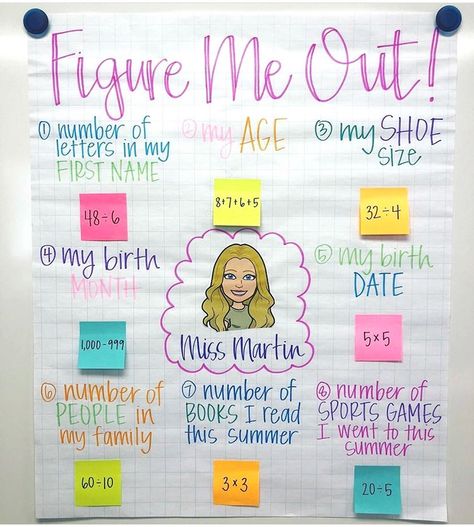 Figure Me Out!
① number of
letters in my
FIRST NAME
48÷6
② my AGE
8+7+6+5
③ my SHOE
size
32÷4
④ my birth
MONTH
1,000-999
Miss Martin
⑤ my birth
DATE
5x5
⑥ number of
PEOPLE in
my family
60÷10
⑦ number of
BOOKS I read
this summer
3x3
⑧ number of
SPORTS GAMES
I went to this
summer
20÷5